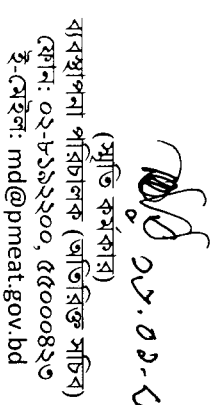 (স্মৃতি কর্মকার)
ব্যবস্থাপনা পরিচালক (অতিরিক্ত সচিব)
ফোন: ০২-৮১৯২২০০, ৫৫০০০৪২৩
ই-মেইল: md@pmeat.gov.bd